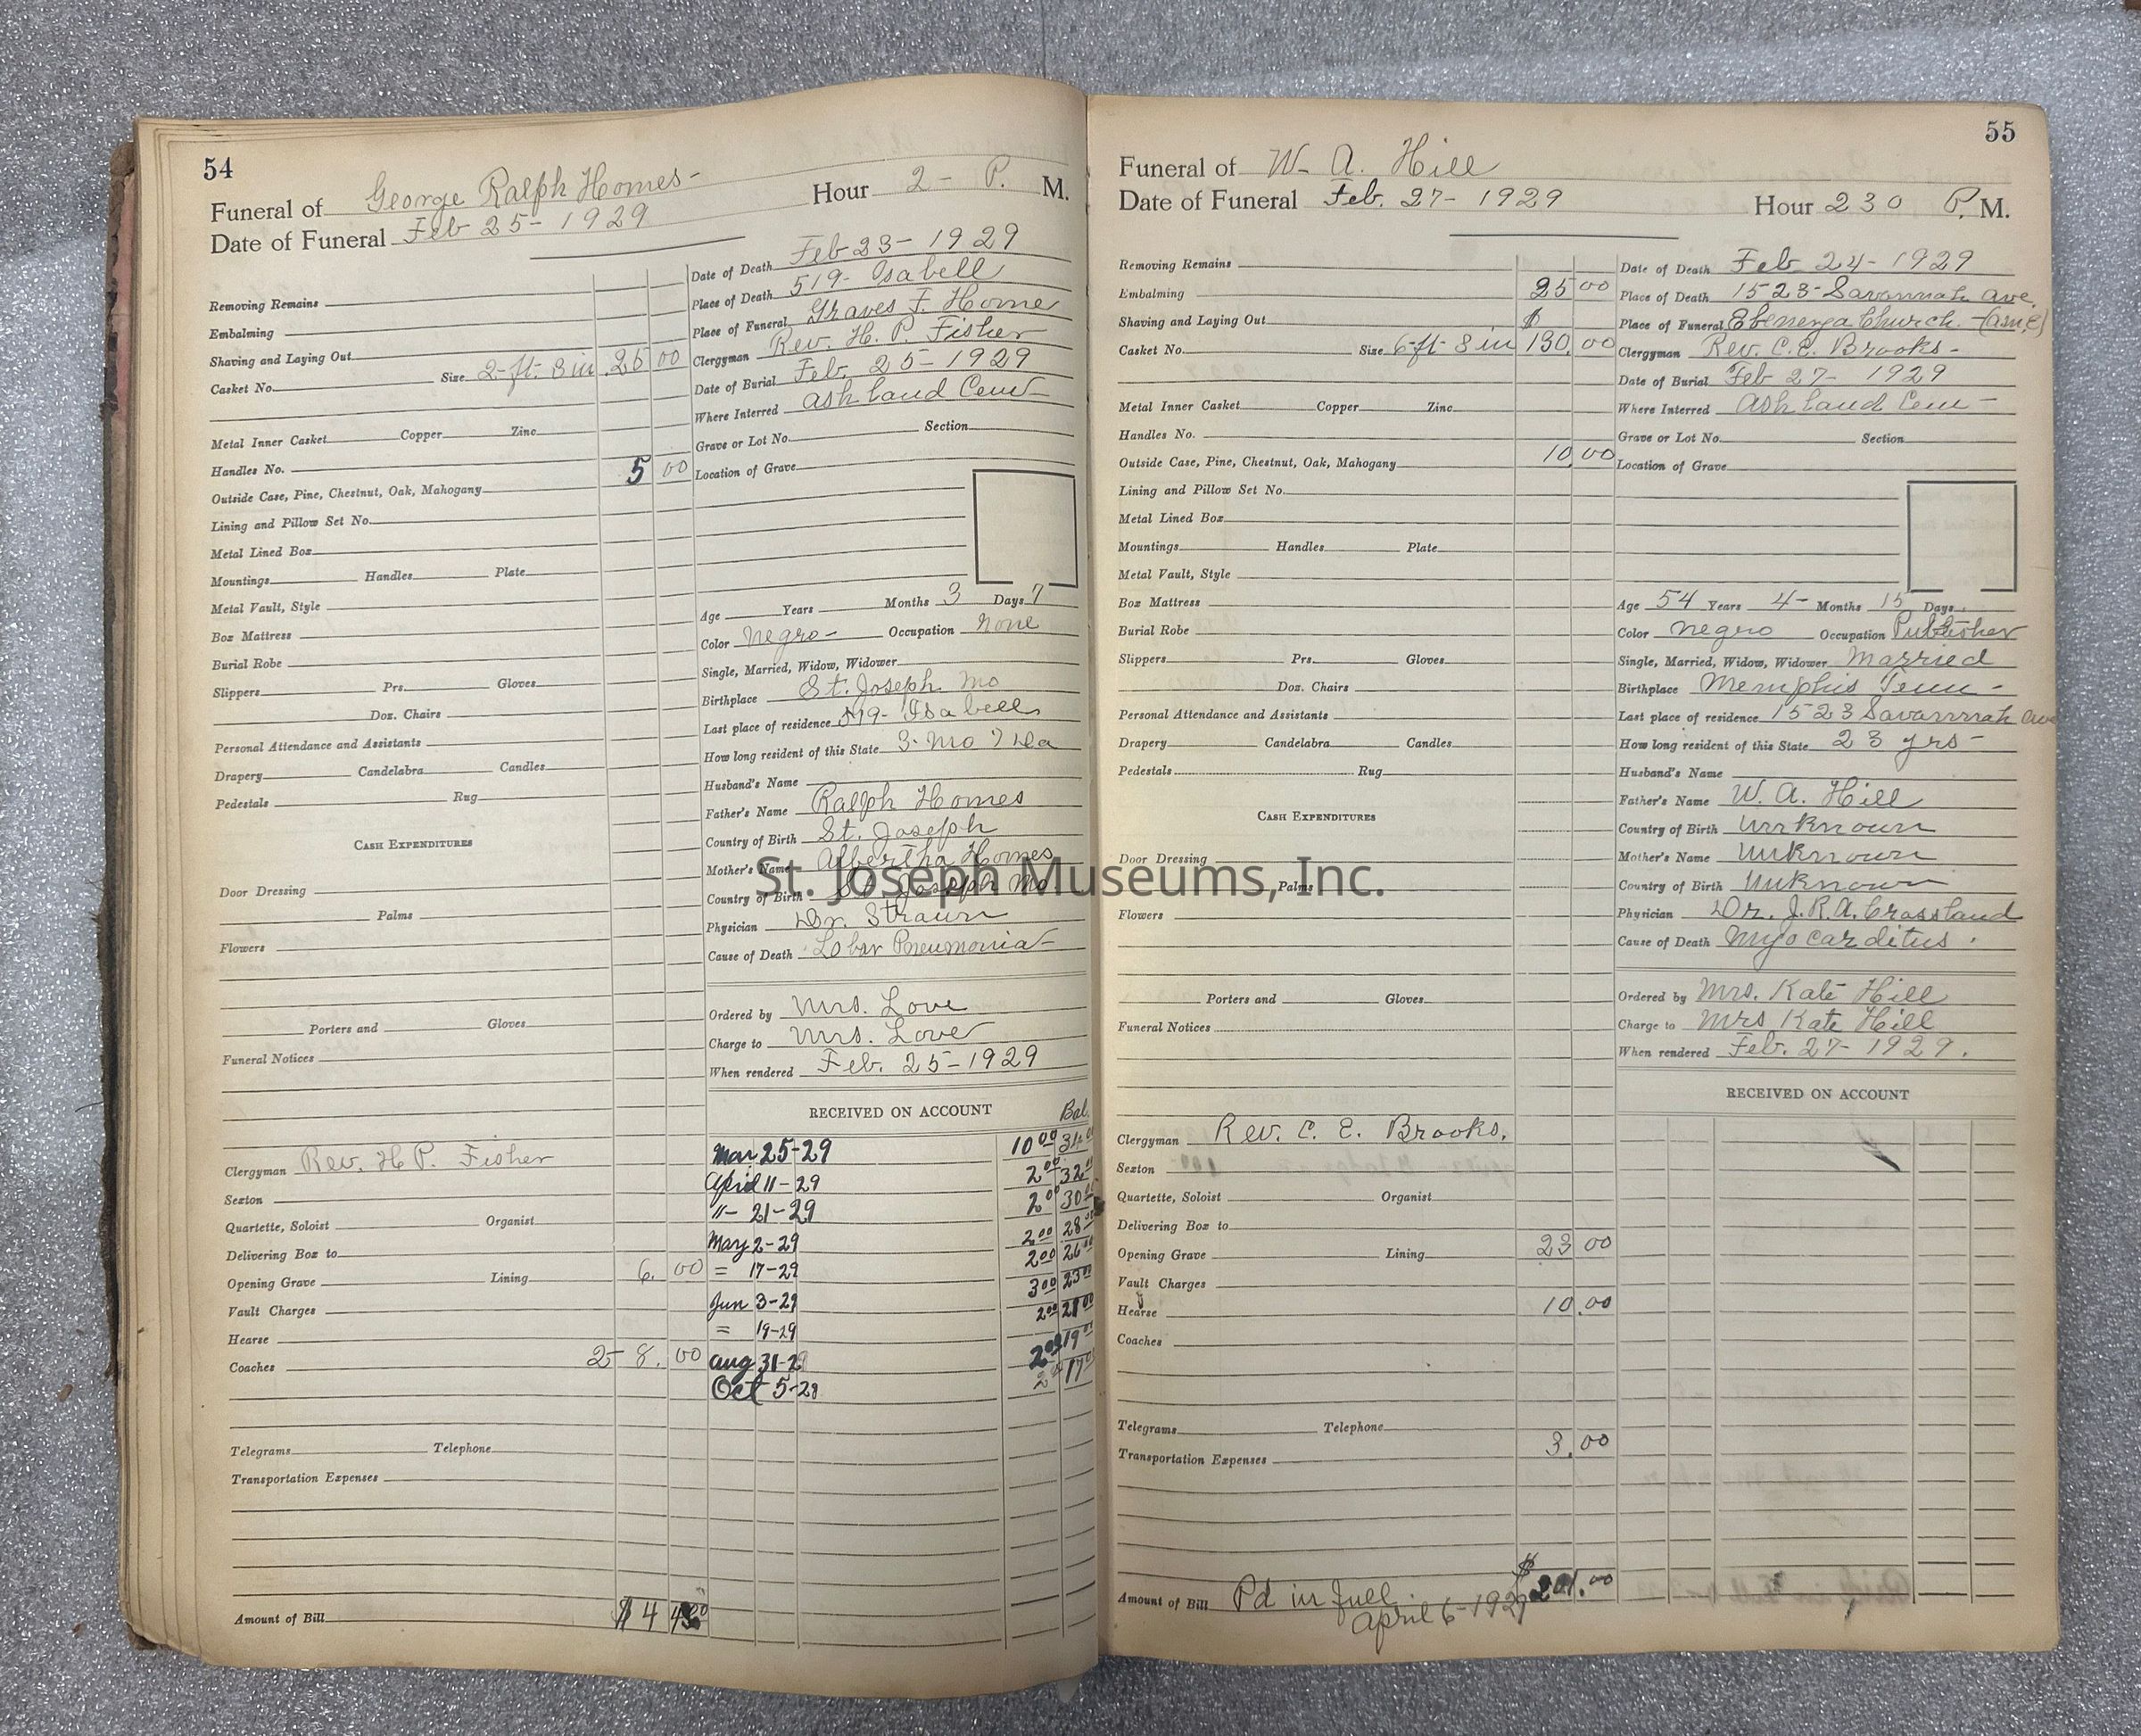 54
Funeral of George Ralph Homes- Hour 2- P. M.
Date of Funeral Feb 25- 1929
Removing Remains
Embalming
Shaving and Laying Out
Casket No. Size 2-ft. 8 in. 25 00
Metal Inner Casket Copper Zinc
Handles No.
Outside Case, Pine, Chestnut, Oak, Mahogany 5 00
Lining and Pillow Set No.
Metal Lined Box
Mountings Handles Plate
Metal Vault, Style
Box Mattress
Burial Robe
Slippers Prs. Gloves
Doz. Chairs
Personal Attendance and Assistants
Drapery Candelabra Candles
Pedestals Rug
CASH EXPENDITURES
Door Dressing
Palms
Flowers
Porters and Gloves
Funeral Notices
Clergyman Rev. H. P. Fisher
Sexton
Quartette, Soloist Organist
Delivering Box to
Opening Grave Lining 6. 00
Vault Charges
Hearse
Coaches 2- 8. 00
Telegrams Telephone
Transportation Expenses
Amount of Bill $44
Date of Death Feb 23- 1929
Place of Death 519- Isabell
Place of Funeral Graves F. Home
Clergyman Rev. H. P. Fisher
Date of Burial Feb. 25- 1929
Where Interred Ashland Cem-
Grave or Lot No. Section
Location of Grave
Age Years Months 3 Days 7
Color Negro- Occupation None
Single, Married, Widow, Widower
Birthplace St. Joseph Mo
Last place of residence 519- Isabell
How long resident of this State 3- Mo 7 Da
Husband's Name
Father's Name Ralph Homes
Country of Birth St. Joseph
Mother's Name Albertha Homes
Country of Birth St. Joseph Mo
Physician Dr. Straun
Cause of Death Lobar Pneumonia-
Ordered by Mrs. Love
Charge to Mrs. Love
When rendered Feb. 25-1929
RECEIVED ON ACCOUNT Bal.
Mar 25-29 10 00 34 00
April 11-29 2 00 32 00
11- 21-29 2 00 30 00
May 2-29 2 00 28 00
= 17-29 2 00 26 00
Jun 3-29 3 00 23 00
= 19-29 2 00 21 00
Aug 31-29 2 00 19 00
Oct 5-29 2 17 00
55
Funeral of W. A. Hill
Date of Funeral Feb. 27- 1929 Hour 2 30 P. M.
Removing Remains
Embalming 25 00
Shaving and Laying Out $
Casket No. Size 6-ft 8 in 130. 00
Metal Inner Casket Copper Zinc
Handles No.
Outside Case, Pine, Chestnut, Oak, Mahogany 10. 00
Lining and Pillow Set No.
Metal Lined Box
Mountings Handles Plate
Metal Vault, Style
Box Mattress
Burial Robe
Slippers Prs. Gloves
Doz. Chairs
Personal Attendance and Assistants
Drapery Candelabra Candles
Pedestals Rug
CASH EXPENDITURES
Door Dressing
Palms
Flowers
Porters and Gloves
Funeral Notices
Clergyman Rev. C. E. Brooks.
Sexton
Quartette, Soloist Organist
Delivering Box to
Opening Grave Lining 23 00
Vault Charges
Hearse 10.00
Coaches
Telegrams Telephone
Transportation Expenses 3.00
Amount of Bill Pd in full $201.00
April 6-1929
Date of Death Feb 24- 1929
Place of Death 1523- Savannah Ave.
Place of Funeral Ebenerza Church - (A.M.E)
Clergyman Rev. C. E. Brooks-
Date of Burial Feb 27- 1929
Where Interred Ashland Cem-
Grave or Lot No. Section
Location of Grave
Age 54 Years 4- Months 15 Days
Color Negro Occupation Publisher
Single, Married, Widow, Widower Married
Birthplace Memphis Tenn-
Last place of residence 1523 Savannah Ave
How long resident of this State 23 yrs-
Husband's Name
Father's Name W. A. Hill
Country of Birth Unknown
Mother's Name Unknown
Country of Birth Unknown
Physician Dr. J. R. A. Crossland
Cause of Death Myocarditus.
Ordered by Mrs. Kate Hill
Charge to Mrs Kate Hill
When rendered Feb. 27- 1929.
RECEIVED ON ACCOUNT
St. Joseph Museums, Inc.